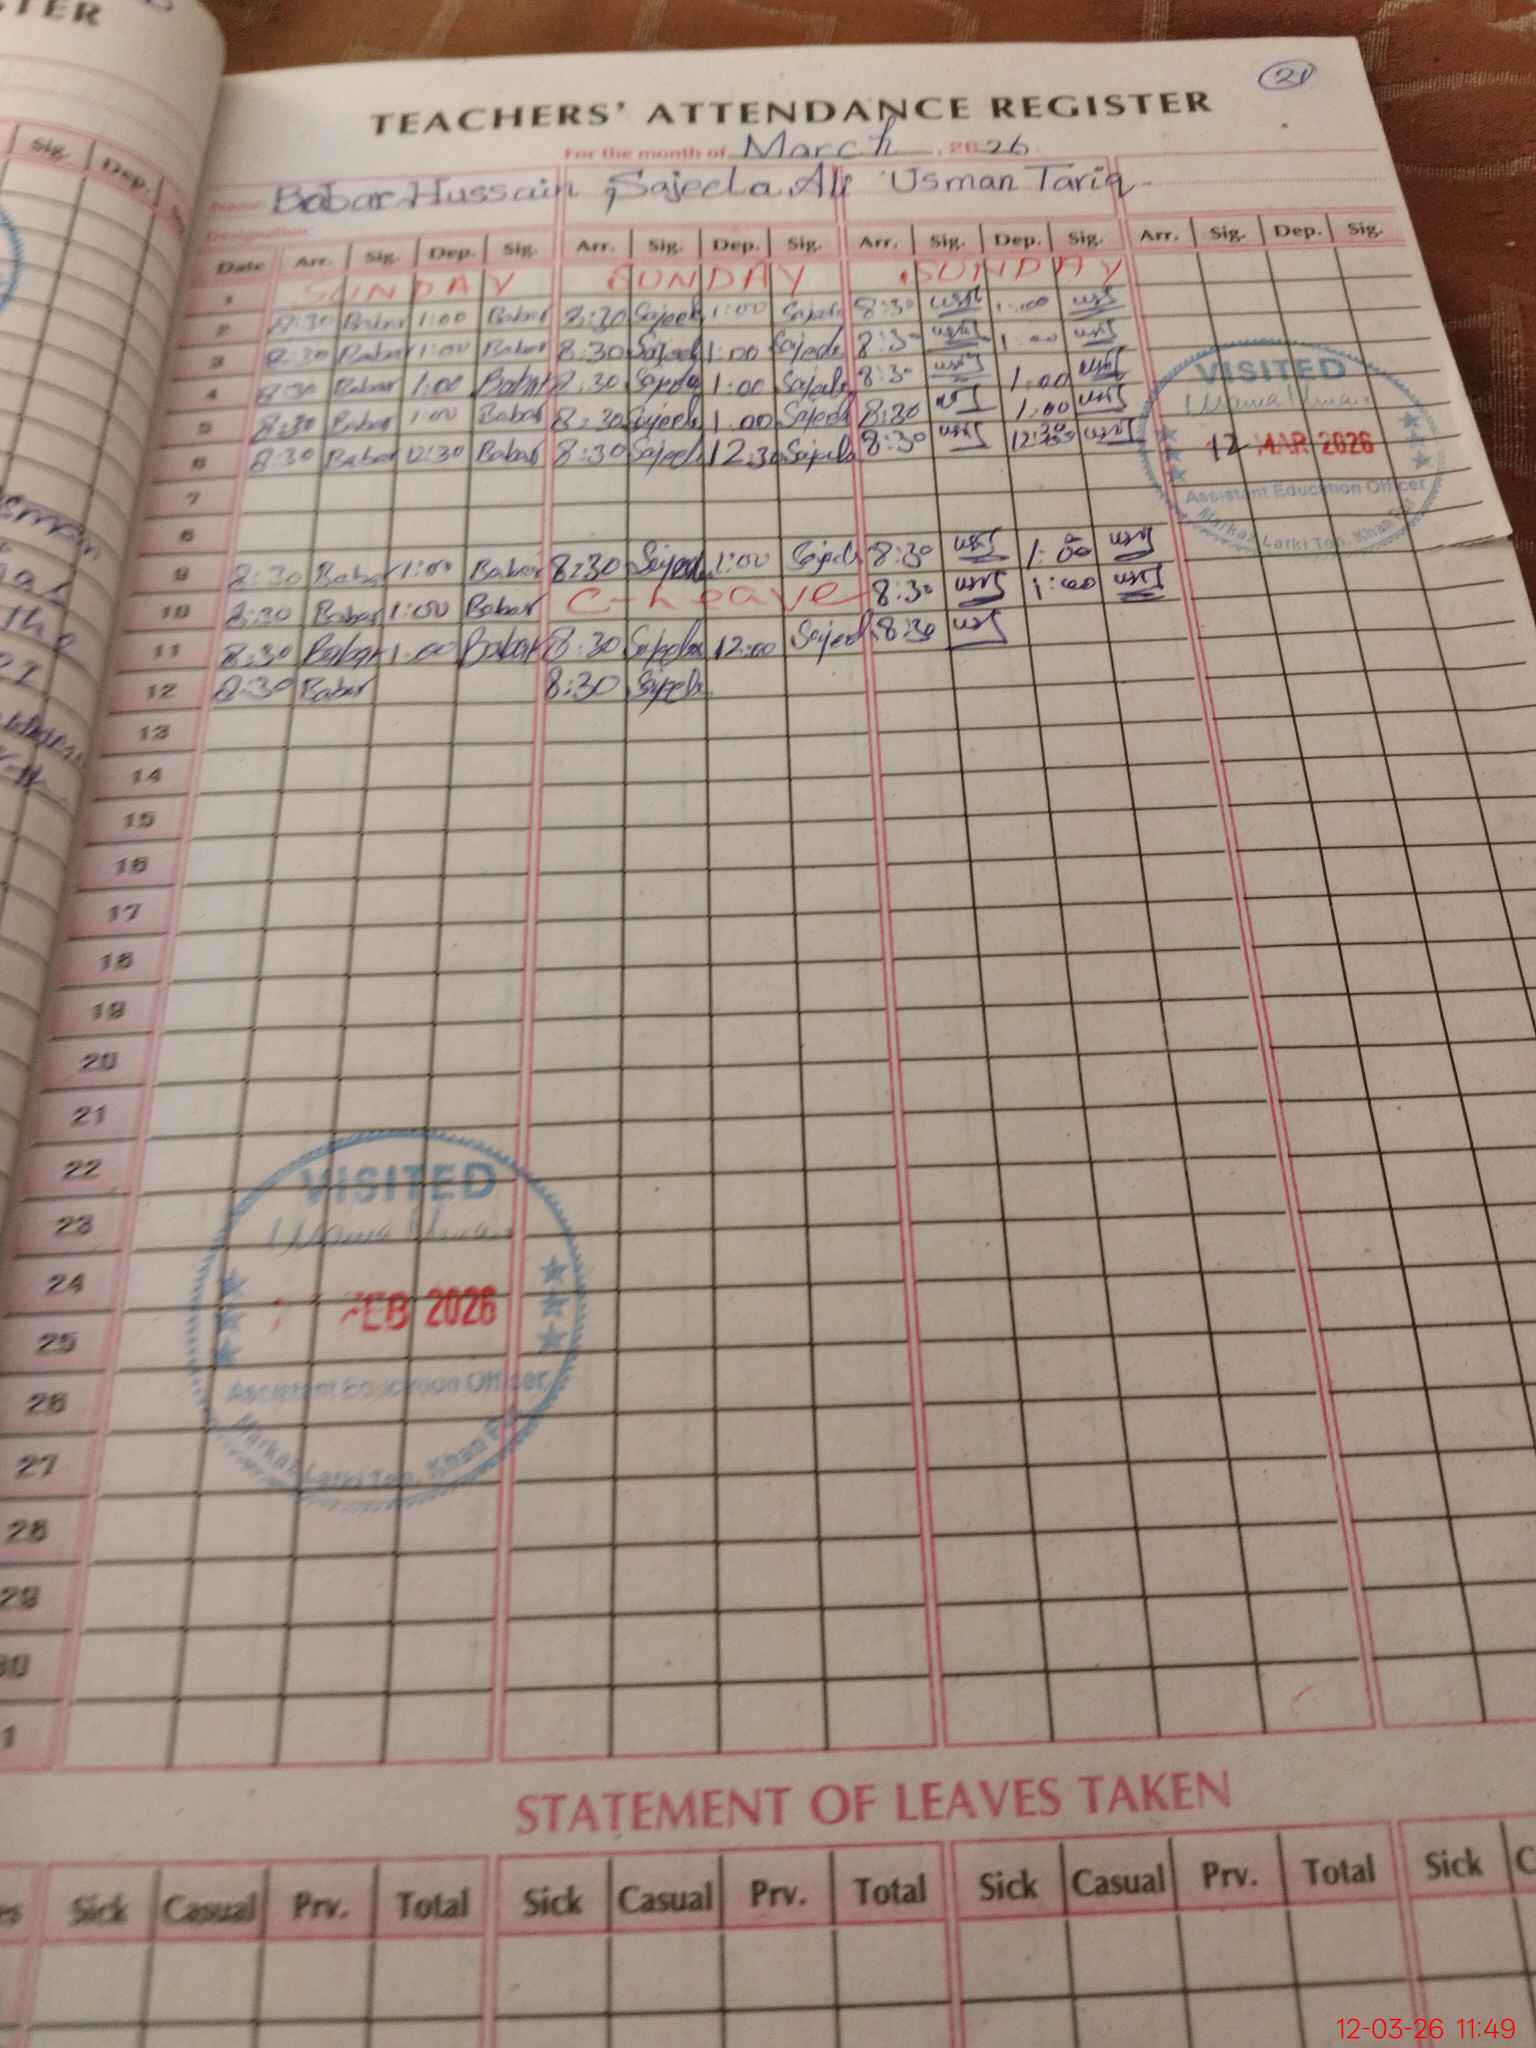 STER
21
TEACHERS' ATTENDANCE REGISTER
For the month of March 2026
Name Babar Hussain Sajeela Ali Usman Tariq
Designation
Sig. Dep.
Date Arr. Sig. Dep. Sig. Arr. Sig. Dep. Sig. Arr. Sig. Dep. Sig. Arr. Sig. Dep. Sig.
1 SUNDAY SUNDAY SUNDAY
2 8:30 Babar 1:00 Babar 8:30 Sajeela 1:00 Sajeela 8:30 1:00
3 8:30 Babar 1:00 Babar 8:30 Sajeela 1:00 Sajeela 8:30 1:00
4 8:30 Babar 1:00 Babar 8:30 Sajeela 1:00 Sajeela 8:30 1:00
5 8:30 Babar 1:00 Babar 8:30 Sajeela 1:00 Sajeela 8:30 1:00
6 8:30 Babar 12:30 Babar 8:30 Sajeela 12:30 Sajeela 8:30 12:30
7
8
9 8:30 Babar 1:00 Babar 8:30 Sajeela 1:00 Sajeela 8:30 1:00
10 8:30 Babar 1:00 Babar C-Leave 8:30 1:00
11 8:30 Babar 1:00 Babar 8:30 Sajeela 12:00 Sajeela 8:30
12 8:30 Babar 8:30 Sajeela
VISITED
12 MAR 2026
Assistant Education Officer
Markaz Larki Teh. Khan Pur
13
14
15
16
17
18
19
20
21
22
23
24
25
26
27
28
29
30
1
VISITED
FEB 2026
Assistant Education Officer
Markaz Larki Teh. Khan Pur
STATEMENT OF LEAVES TAKEN
es Sick Casual Prv. Total Sick Casual Prv. Total Sick Casual Prv. Total Sick C
12-03-26 11:49